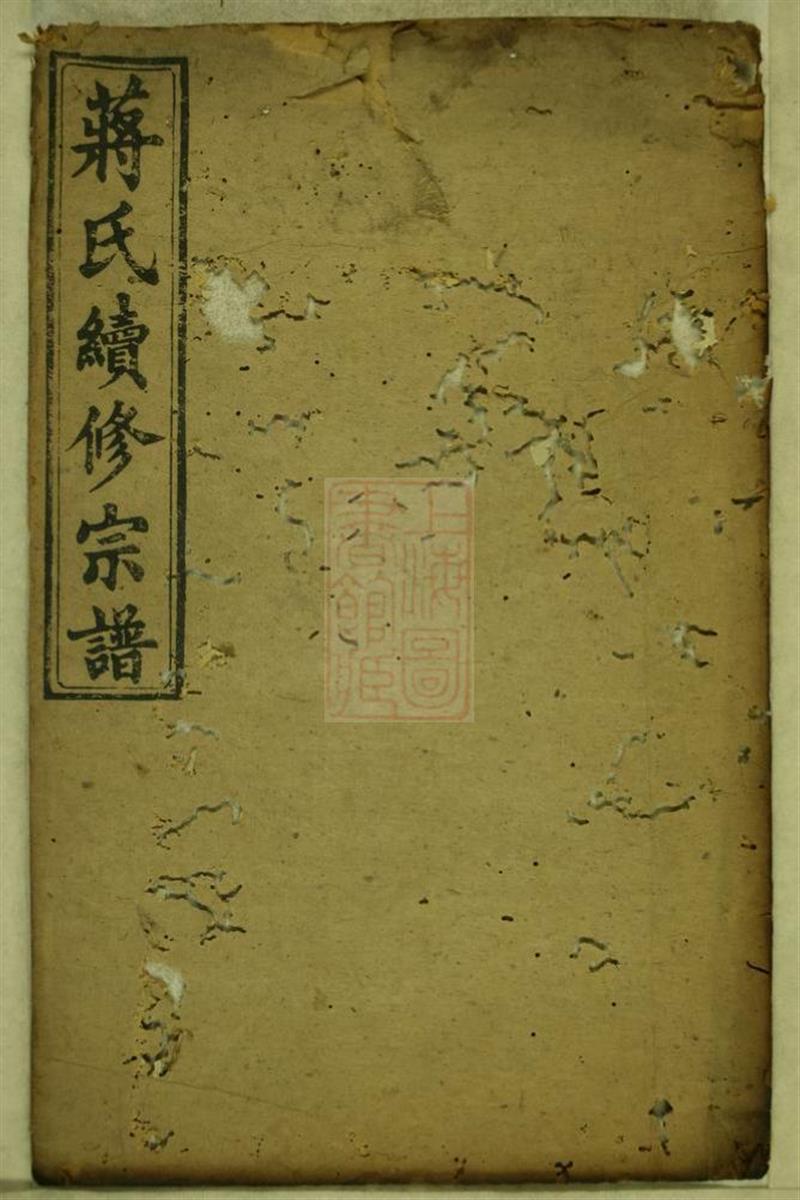 蔣氏續修宗譜
上海圖
書館藏